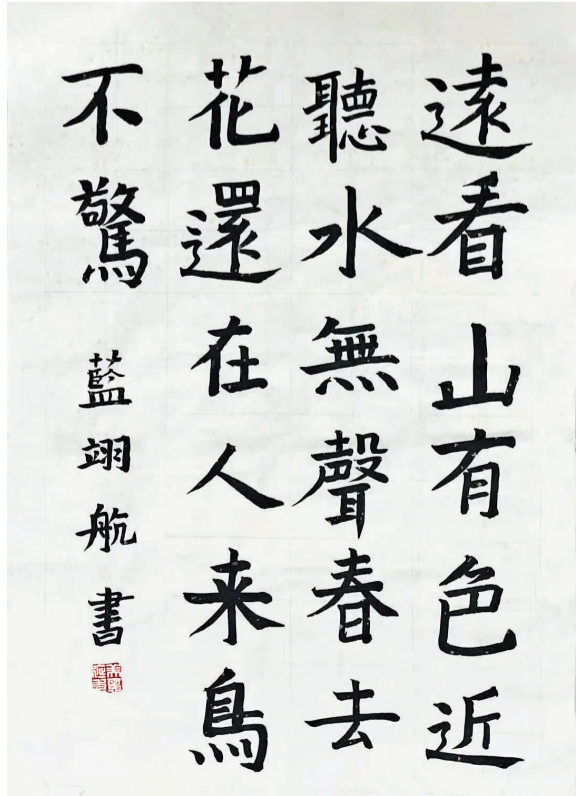 遠看山有色近
聽水無聲春去
花還在人来鳥
不驚
藍翊航書